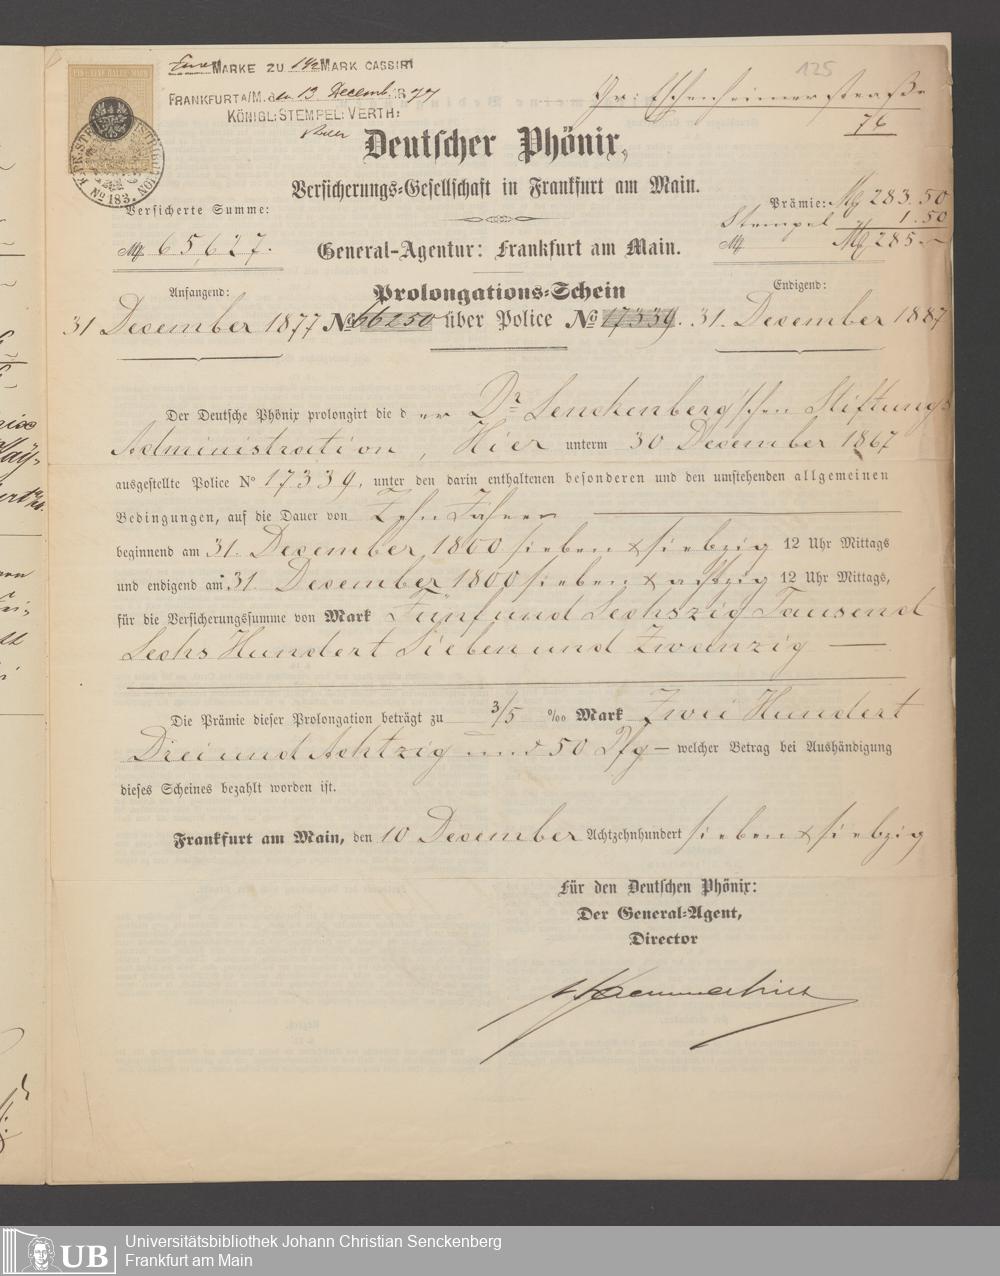 125
Eine MARKE ZU 1½ MARK CASSIRT
FRANKFURT A/M. d. 13 Decemb. 1877
KÖNIGL: STEMPEL: VERTH:
Gr: Eschenheimerstraße
76
EIN & EINE HALBE MARK
K. PR. STEMPEL DISTRIBUTION
No 183.
Deutscher Phönix,
Versicherungs-Gesellschaft in Frankfurt am Main.
Versicherte Summe:
M 65,627.
General-Agentur: Frankfurt am Main.
Prämie: M 283.50
Stempel 1.50
M M 285.—
Anfangend:
31 December 1877
Prolongations-Schein
No 66250 über Police No 17339.
Endigend:
31. December 1887
Der Deutsche Phönix prolongirt die d er Dr Senckenberg'schen Stiftungs
Administration, Hier unterm 30 December 1867
ausgestellte Police No 17339, unter den darin enthaltenen besonderen und den umstehenden allgemeinen
Bedingungen, auf die Dauer von Zehn Jahren
beginnend am 31. December 1800 sieben & siebzig 12 Uhr Mittags
und endigend am 31. December 1800 sieben & achtzig 12 Uhr Mittags,
für die Versicherungssumme von Mark Fünf und Sechszig Tausend
Sechs Hundert Sieben und Zwanzig —
Die Prämie dieser Prolongation beträgt zu 3/5 ‰ Mark Zwei Hundert
Drei und Achtzig und 50 Pfg — welcher Betrag bei Aushändigung
dieses Scheines bezahlt worden ist.
Frankfurt am Main, den 10 December Achtzehnhundert sieben & siebzig
Für den Deutschen Phönix:
Der General-Agent,
Director
UB
Universitätsbibliothek Johann Christian Senckenberg
Frankfurt am Main